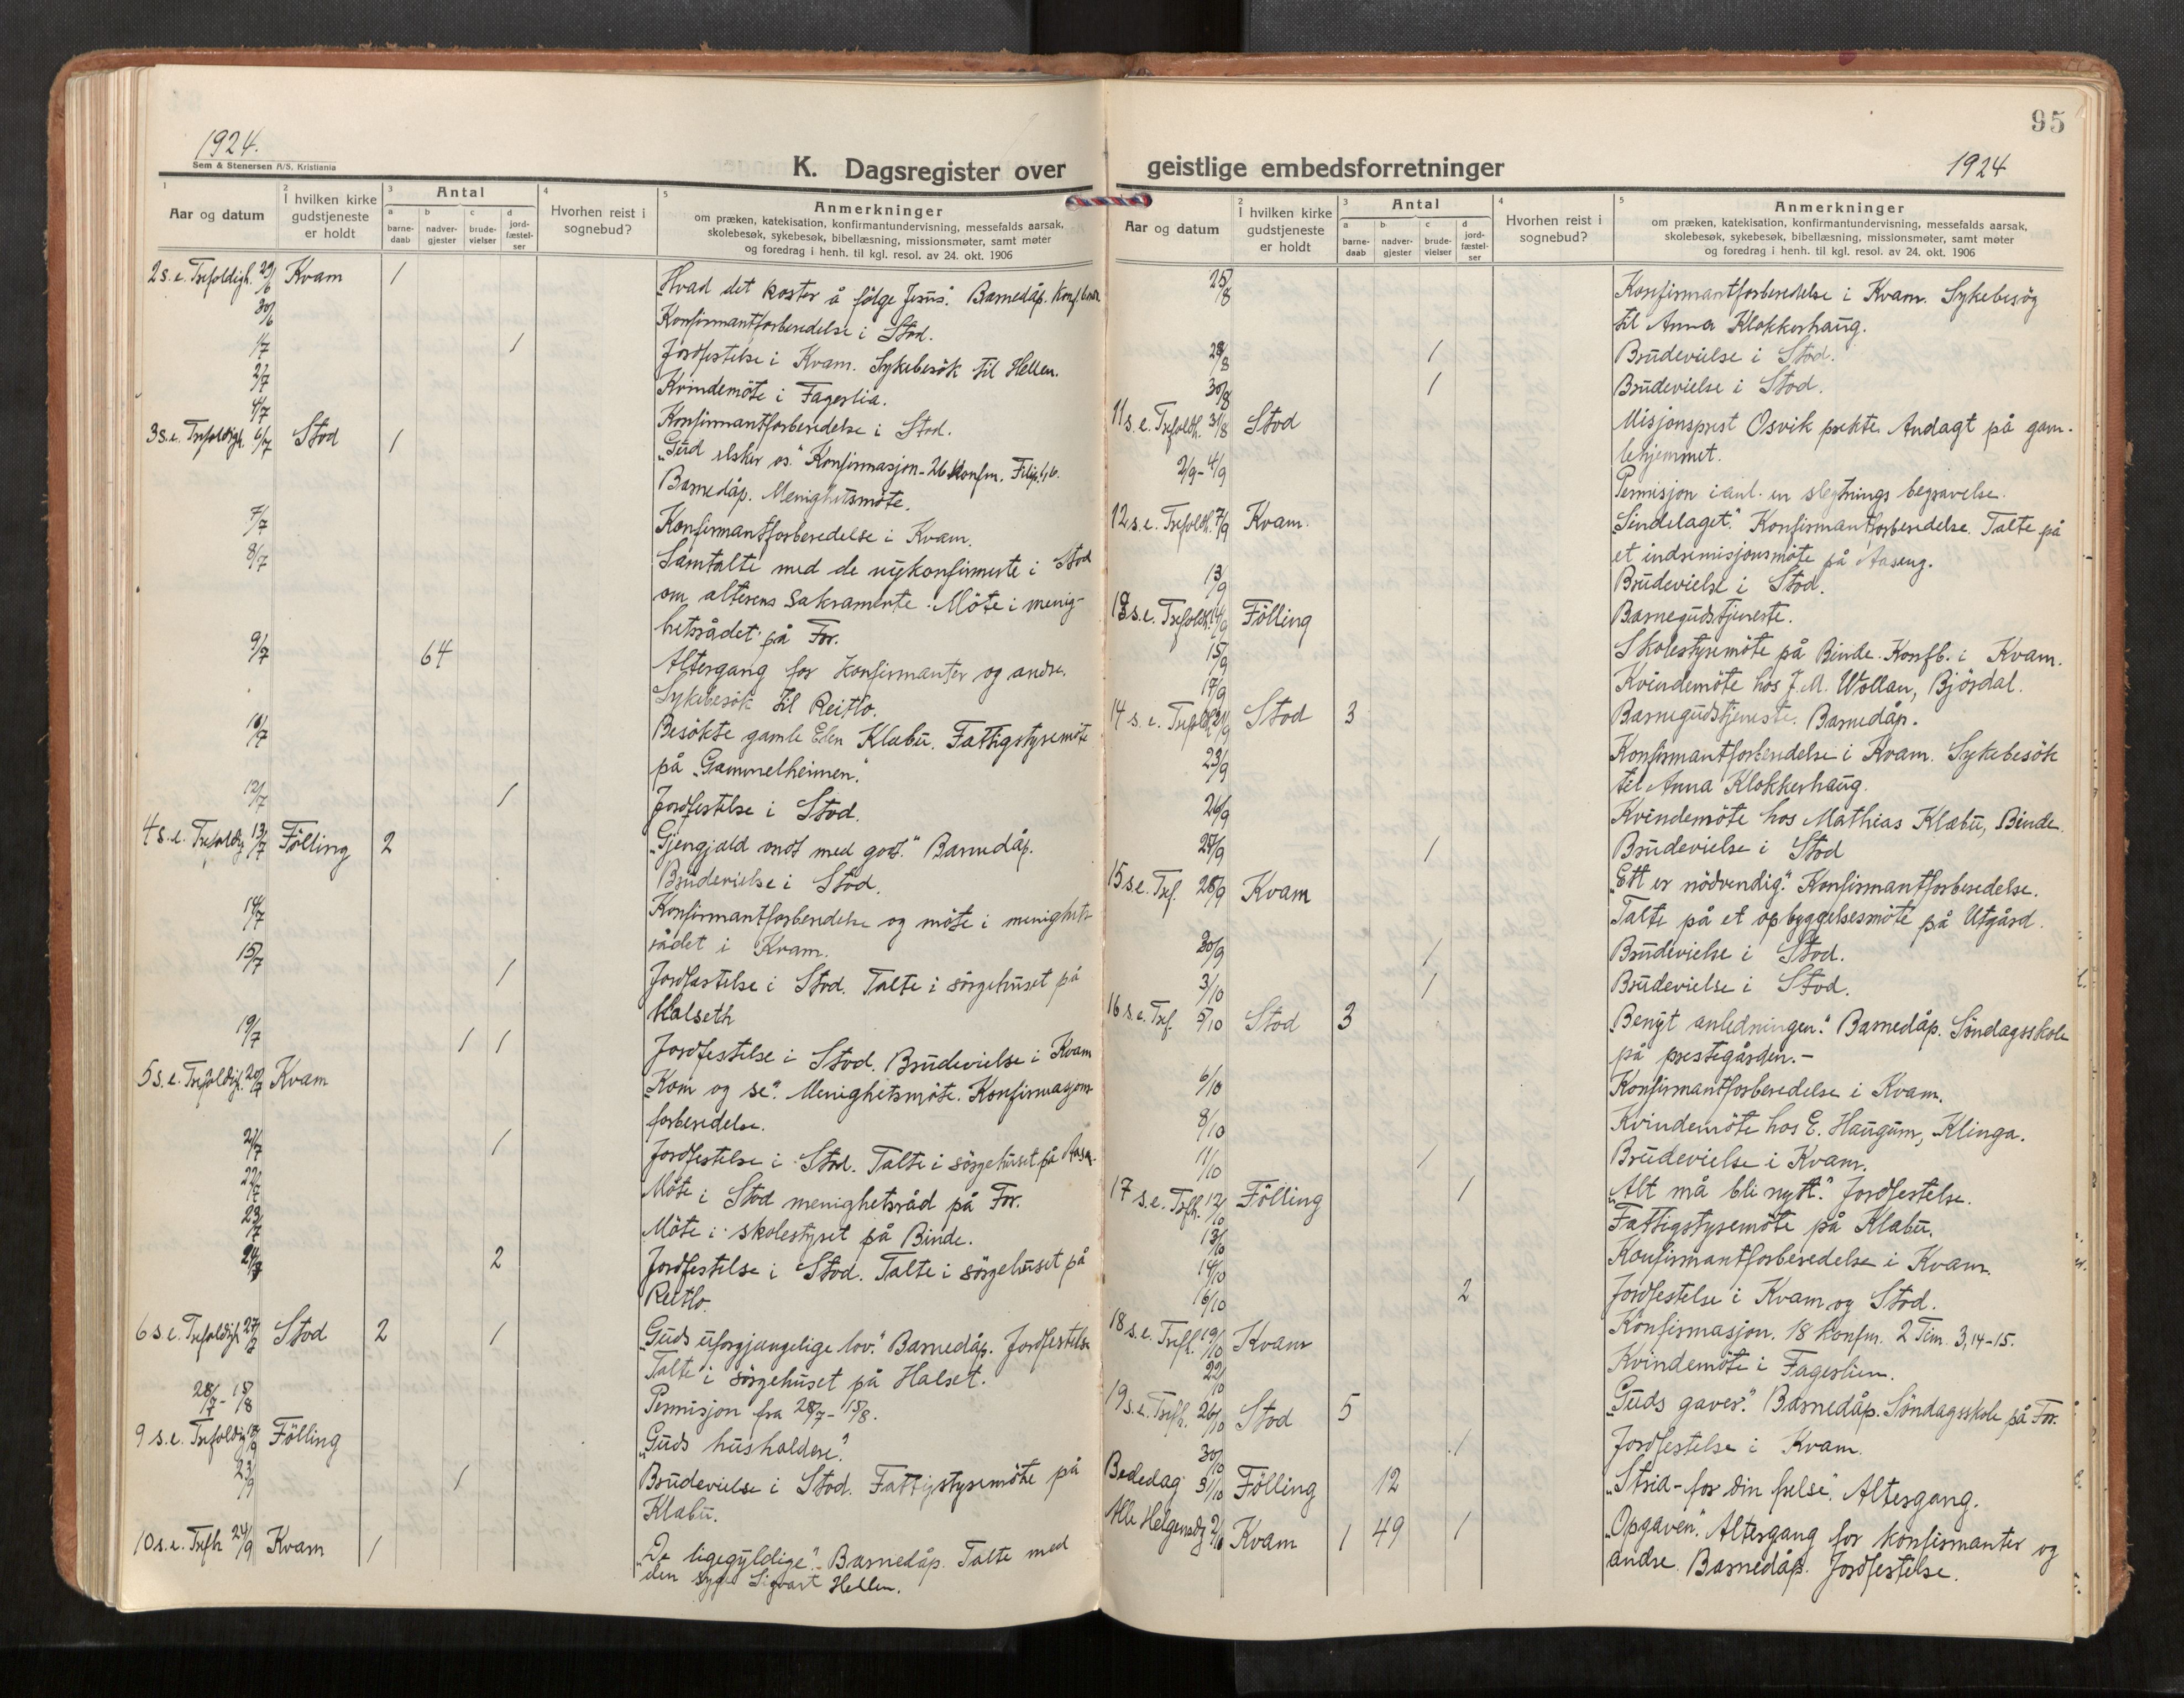 1924.
Sem & Stenersen A/S, Kristiania
K. Dagsregister over
1
Aar og datum
2
I hvilken kirke
gudstjeneste
er holdt
3
Antal
a
barne-
daab
b
nadver-
gjester
c
brude-
vielser
d
jord-
fæstel-
ser
4
Hvorhen reist i
sognebud?
5
Anmerkninger
om præken, katekisation, konfirmantundervisning, messefalds aarsak,
skolebesøk, sykebesøk, bibellæsning, missionsmøter, samt møter
og foredrag i henh. til kgl. resol. av 24. okt. 1906
2 s. e. Trefoldigh. 29/6 Kvam 1 "Hvad det koster å følge Jesus". Barnedåp.
30/6 Konfirmantforberedelse i Stod.
1/7 1 Jordfestelse i Kvam. Sykebesök til Hellem.
2/7 Kvindemöte i Fageslia.
4/7 Konfirmantforberedelse i Stod.
3 s. e. Trefoldigh. 6/7 Stod 1 "Gud elsker os." Konfirmasjon - 26 konfm. Filip. 1,6.
Barnedåp. Menighetsmöte.
7/7 Konfirmantforberedelse i Kvam.
8/7 Samtalte med de nykonfirmerte i Stod
om alterens sakramente. Möte i menig-
hetsrådet på For.
9/7 64 Altergang for konfirmanter og andre.
Sykebesök til Reitlo.
10/7 Besökte gamle Elen Klæbu. Fattigstyremöte
på "Gammelheimen."
12/7 1 Jordfestelse i Stod.
4 s. e. Trefoldig 13/7 Fölling 2 "Gjengjæld ondt med godt." Barnedåp.
Brudevielse i Stod.
14/7 Konfirmantforberedelse og möte i menighets-
rådet i Kvam.
15/7 1 Jordfæstelse i Stod. Talte i sörgehuset på
Halseth
19/7 1 1 Jordfestelse i Stod. Brudevielse i Kvam
5 s. e. Trefoldigh. 20/7 Kvam "Kom og se". Menighetsmöte. Konfirmasjons-
forberedelse.
21/7 1 Jordfestelse i Stod. Talte i sörgehuset på
22/7 Möte i Stod menighetsråd på For.
23/7 Möte i skolestyret på Binde.
24/7 2 Jordfestelse i Stod. Talte i sörgehuset på
Reitlo.
6 s. e. Trefoldigh 27/7 Stod 2 1 "Guds uforgjængelige lov." Barnedåp. Jordfestelse
Talte i sörgehuset på Halset.
28/7 - 15/8 Permisjon fra 28/7 - 15/8.
9 s. e. Trefoldig Fölling "Guds husholdere".
23/9 1 Brudevielse i Stod. Fattigstyremöte på
Klæbu.
10 s. e. Trefh 24/9 Kvam 1 "De ligegyldige". Barnedåp. Talte med
den syge Sigvart Hellem.
95
geistlige embedsforretninger
1924
1
Aar og datum
2
I hvilken kirke
gudstjeneste
er holdt
3
Antal
a
barne-
daab
b
nadver-
gjester
c
brude-
vielser
d
jord-
fæstel-
ser
4
Hvorhen reist i
sognebud?
5
Anmerkninger
om præken, katekisation, konfirmantundervisning, messefalds aarsak,
skolebesøk, sykebesøk, bibellæsning, missionsmøter, samt møter
og foredrag i henh. til kgl. resol. av 24. okt. 1906
25/8 Konfirmantforberedelse i Kvam. Sykebesög
til Anna Klokkerhaug.
28/8 1 Brudevielse i Stod.
30/8 1 Brudevielse i Stod.
11 s. e. Trefoldh. 31/8 Stod Misjonsprest Osvik prekte. Andagt på gam-
lehjemmet.
2/9 - 4/9 Permisjon i anl. en slegtnings begravelse.
12 s. e. Trefoldh. 7/9 Kvam. "Sindelaget". Konfirmantforberedelse. Talte på
et indremisjonsmöte på Aaseng.
13/9 Brudevielse i Stod.
13 s. e. Trefoldh. 14/9 Fölling Barnegudstjeneste.
15/9 Skolestyremöte på Binde. Konfb. i Kvam.
17/9 Kvindemöte hos J. M. Wollan, Björdal.
14 s. e. Trefoldh 21/9 Stod 3 Barnegudstjeneste. Barnedåp.
23/9 Konfirmantforberedelse i Kvam. Sykebesök
til Anna Klokkerhaug.
26/9 Kvindemöte hos Mathias Klæbu, Binde.
27/9 1 Brudevielse i Stod
15 s. e. Tref. 28/9 Kvam "Ett er nödvendig." Konfirmantforberedelse.
Talte på et opbyggelsesmöte på Utgård.
30/9 1 Brudevielse i Stod.
3/10 1 Brudevielse i Stod.
16 s. e. Tref. 5/10 Stod 3 Benyt anledningen." Barnedåp. Söndagsskole
på prestegården. -
6/10 Konfirmantforberedelse i Kvam.
8/10 Kvindemöte hos E. Haugum, Klinga.
11/10 1 Brudevielse i Kvam.
17 s. e. Trfh. 12/10 Fölling 1 "Alt må bli nytt." Jordfestelse.
13/10 Fattigstyremöte på Klæbu.
14/10 Konfirmantforberedelse i Kvam.
16/10 2 Jordfestelse i Kvam og Stod.
18 s. e. Trefl. 19/10 Kvam Konfirmasjon. 18 konfm. 2 Tim. 3,14-15.
22/10 Kvindemöte i Fageslien.
19 s. e. Trefh. 26/10 Stod 5 "Guds gaver." Barnedåp. Söndagsskole på For.
30/10 1 Jordfestelse i Kvam.
Bededag 31/10 Fölling 12 "Strid - for din frelse". Altergang.
Alle Helgensdg Kvam 1 49 1 "Opgaven". Altergang for konfirmanter og
andre. Barnedåp. Jordfestelse.